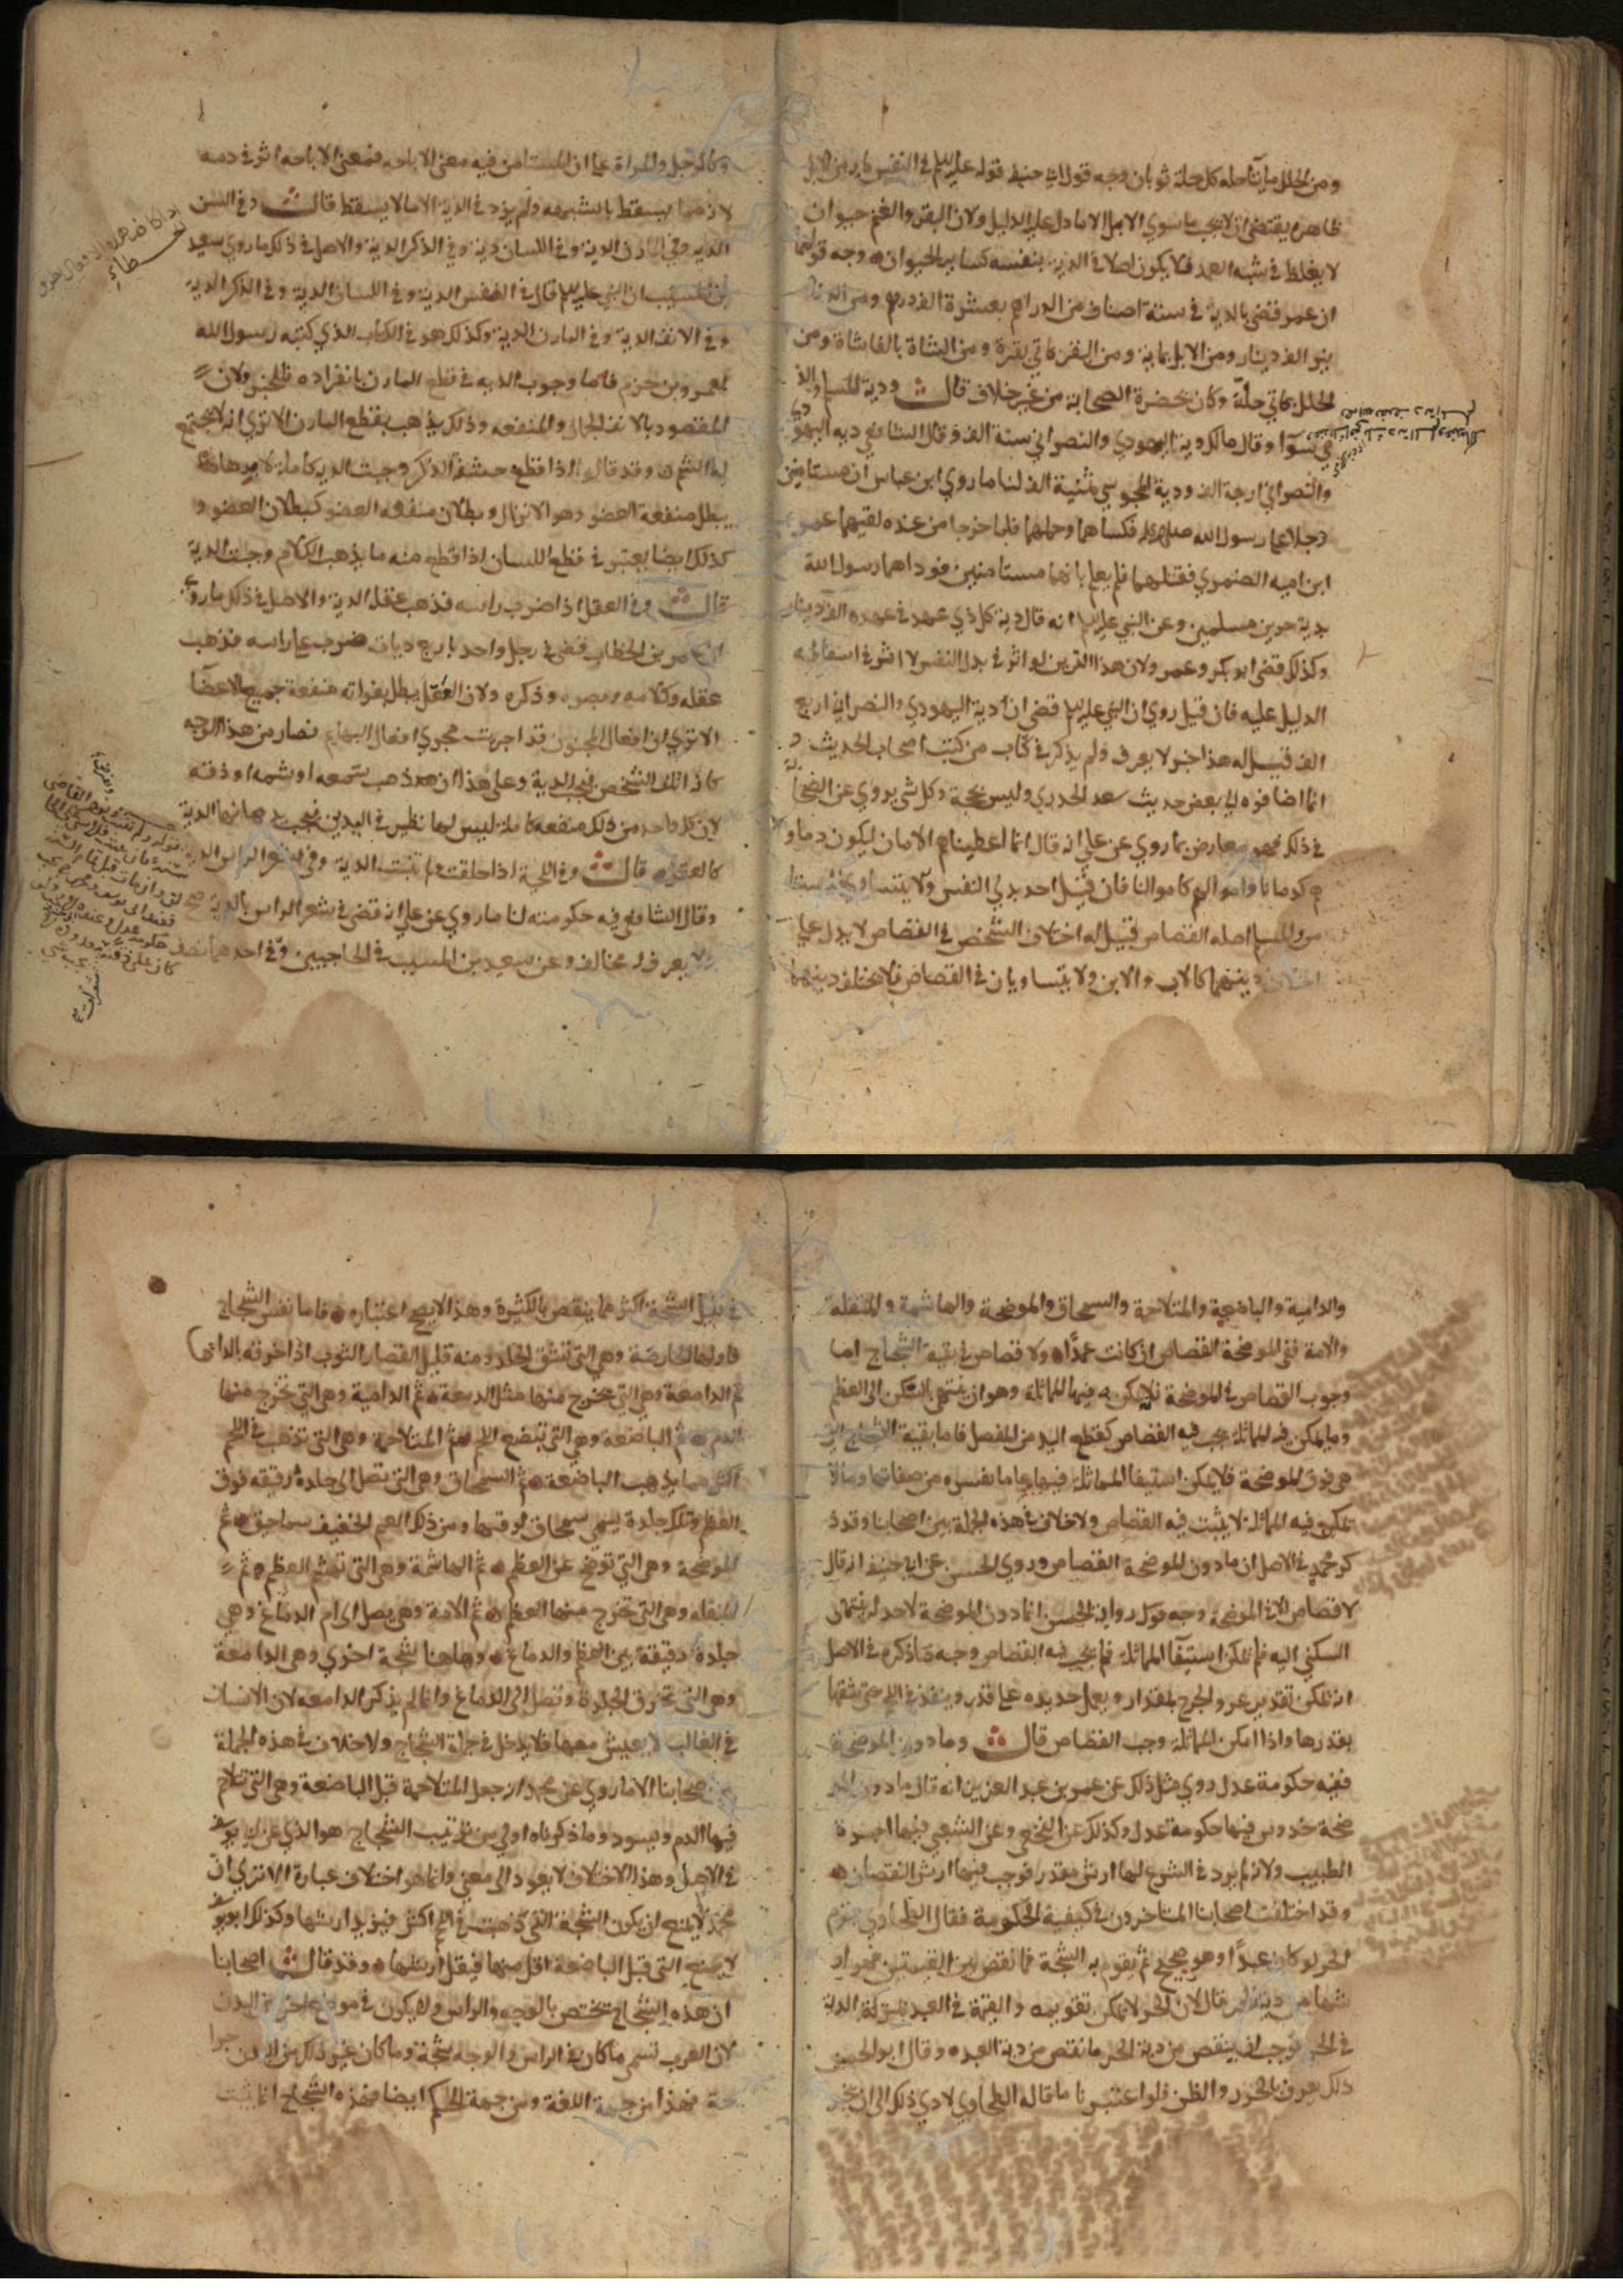 ومن الحلل مايتا حله كل حلة ثوبان وجه قول ابي حنيفه قوله عليه السلم في النفس مايه من الابل
ظاهره يقتضي ان لا يجب ما سوي الابل الا ما دل عليه الدليل ولان البقر والغنم حيوان
لا يغلظ في شبه العمد فلا يكون اصلا في الدية بنفسه كساير الحيوان وجه قولهما
ان عمر قضي بالدية في ستة اصناف من الدراهم بعشرة الف درهم ومن الدنا
نير الف دينار ومن الابل بماية ومن البقر بماتي بقرة ومن الشاة بالفا شاة ومن
الحلل بماتي حلة وكان بحضرة الصحابة من غير خلاف قال ودية المسلم والذ
مي سوآ وقال مالك دية اليهودي والنصراني ستة الف وقال الشافعي دية اليهو
والنصراني اربعة الف ودية المجوسي ثمنية الف لنا ما روي ابن عباس ان مستامنين
دخلا علي رسول الله صلى الله فكساهما وحملهما فلما خرجا من عنده لقيهما عمرو
ابن اميه الضمري فقتلهما فلم يعلم بانهما مستامنين فوداهما رسول الله
بدية حرين مسلمين وعن النبي عليه السلم انه قال دية كل ذي عهد في عهده الف دينار
وكذلك قضي ابو بكر وعمر ولان هذا الدين لو اثر في بدل النفس لا اثر في اسقاطه
الدليل عليه فان قيل روي ان النبي عليه السلم قضي ان دية اليهودي والنصراني اربع
الف قيل له هذا خبر لا يعرف ولم يذكر في كتاب من كتب اصحاب الحديث
انما اضافوه الي بعض حديث سعد الخدري وليس بحجة وكل شي يروي عن الصحا
في ذلك فهو معارض بما روي عن علي انه قال انما اعطيناهم الامان ليكون دماو
هم كدمانا واموالهم كاموالنا فان قيل احد بدلي النفس ولا يتساوي
من المسلم اصله القصاص قيل له اختلاف الشخص في القصاص لا يدل علي
اختلاف ديتهما كالاب والابن ولا يتساويان في القصاص فلا يختلف ديتهما
وكالرجل والمراة علي ان المستامن فيه معني الاباحه فمعني الاباحه اثر في دمه
لانه مما يسقط بالشبهه ولم يزد في الدية الا ما لا يسقط قال وفي النفس
الديه وفي المارن الدية وفي اللسان دية وفي الذكر الدية والاصل في ذلك ما روي سعيد
بن المسيب ان النبي عليه السلم قال في النفس الدية وفي اللسان الدية وفي الذكر الدية
وفي الانف الدية وفي المارن الدية وكذلك هو في الكتاب الذي كتبه رسول الله
لعمرو بن حزم فاما وجوب الديه في قطع المارن بانفراده فللخبر ولان
المقصود بالانف الجمال والمنفعه وذلك يذهب بقطع المارن الا تري انه لا يجتمع
له الشم وقد قالوا اذا قطع حشفة الذكر وجبت الدية كاملة لان
يبطل منفعة العضو وهو الانزال وبطلان منفعه العضو كبطلان العضو و
كذلك ايضا يعتبر في قطع اللسان اذا قطع منه ما يذهب الكلام وجبت الدية
قال وفي العقل اذا ضرب راسه فذهب عقله الدية والاصل في ذلك ما روي
ان عمر بن الخطاب قضي في رجل واحد باربع ديات ضرب علي راسه فذهب
عقله وكلامه وبصره وذكره ولان العقل يبطل بفواته منفعة جميع الاعضآ
الا تري ان افعال المجنون قد اجريت مجري افعال البهايم فصار من هذا الوجه
كانه اتلف الشخص فيجب الدية وعلي هذا ان ذهب بسمعه او بشمه او ذوقه
لان كل واحد من ذلك منفعه كاملة ليس لها نظير في البدن فيجب بذهابها الدية
كالعقل قال وفي اللحية اذا حلقت فلم تنبت الدية وفي شعر الراس الدية
وقال الشافعي فيه حكومته لنا ما روي عن علي انه قضي في شعر الراس بالدية
ولا يعرف له مخالف وعن سعيد بن المسيب في الحاجبين وفي احدهما نصف
والدامية والباضعة والمتلاحمة والسمحاق والموضحة والهاشمة والمنقلة
والامة ففي الموضحة القصاص ان كانت عمدًا ولا قصاص في بقية الشجاج اما
وجوب القصاص في الموضحة فلانه يمكن فيها المماثلة وهو ان ينتهي بالسكين الي العظم
وما يمكن فيه المماثلة يجب فيه القصاص كقطع اليد من المفصل فاما بقية الشجاج التي
هي فوق الموضحة فلا يمكن استيفا المماثلة فيها علي ما نفسره من صفاتها وما لا
يمكن فيه المماثلة لا يثبت فيه القصاص ولا خلاف في هذه الجملة بين اصحابنا وقد ذ
كر محمد في الاصل ان ما دون الموضحة القصاص وروي الحسن عن ابي حنيفه انه قال
لا قصاص الا في الموضحة وجه قول رواية الحسن ان ما دون الموضحة لا حد له ينتهي
السكين اليه فلم يمكن استيفآ المماثلة فلم يجب فيه القصاص وجه ما ذكره في الاصل
انه يمكن تقدير غور الجرح بمقدار ويعمل حديده علي قدره وينفذ في اللحم حتي يشقها
بقدرها واذا امكن المماثلة وجب القصاص قال وما دون الموضحة
ففيه حكومة عدل روي مثل ذلك عن عمر بن عبد العزيز انه قال ما دون المو
ضحة خدوش فيها حكومة عدل وكذلك عن النخعي وعن الشعبي فيها اجرة
الطبيب ولانه لم يرد في الشرع لها ارش مقدر فوجب فيها ارش النقصان
وقد اختلفت اصحابنا المتاخرون في كيفية الحكومة فقال الطحاوي يقوم
الحر لو كان عبدًا وهو صحيح ثم يقوم به الشجة فما نقص بين القيمتين فهو ار
شها من دية الحر قال لان الحر لا يمكن تقويمه والقيمة في العبد بمنزلة الدية
في الحر فوجب ان ينقص من دية الحر ما نقص من دية العبد وقال ابو الحسن
ذلك يعرف بالحزر والظن فلو اعتبرنا ما قاله الطحاوي لادي ذلك الي ان يجب
في قليل الشجة اكثر مما ينقص بالكثيرة وهذا لا يصح اعتباره فاما نفس الشجاج
فاولها الخارصة وهي التي تشق الجلد ومنه قليل القصار الثوب اذا خرقه
ثم الدامعة وهي التي يخرج منها مثل الدمعة ثم الدامية وهي التي يخرج منها
الدم ثم الباضعة وهي التي تبضع اللحم ثم المتلاحمة وهي التي تذهب في اللحم
اكثر مما يذهب الباضعة ثم السمحاق وهي التي يصل الي جلدة رقيقه فوق
العظم وتلك جلدة يسمي سمحاق لرقتها ومن ذلك الغيم الخفيف سماحيق ثم
الموضحة وهي التي توضح عن العظم ثم الهاشمة وهي التي تهشم العظم ثم
المنقلة وهي التي تخرج منها العظم ثم الامة وهي يصل الي ام الدماغ وهي
جلدة رقيقة بين العظم والدماغ وهاهنا شجة اخري وهي الدامغة
وهي التي تخرق الجلدة وتصل الي الدماغ وانما لم يذكر الدامغه لان الانسان
في الغالب لا يعيش معها فلا يدخل في جملة الشجاج ولا خلاف في هذه الجملة
بين اصحابنا الا ما روي عن محمد انه جعل المتلاحمة قبل الباضعة وهي التي تتلاحم
فيها الدم ويسود وما ذكرناه اولي من ترتيب الشجاج هو الذي عن ابي يوسف
في الاصل وهذا الاختلاف لا يعود الي معني وانما هو اختلاف عبارة الا تري ان
محمد لا يمنع ان يكون الشجة التي ذهبت في اللحم اكثر فيزيد ارشها وكذلك ابو يوسف
لا يمنع التي قبل الباضعة اقل منها فيقل ارشها وقد قال اصحابنا
ان هذه الشجاج تختص بالوجه والراس ولا يكون في موضع اخر من البدن
لان العرب تسمي ما كان في الراس والوجه شجة وما كان غير ذلك من البدن جرا
حة فهذا من جهة اللغة ومن جهة الحكم ايضا فهذه الشجاج انما يثبت